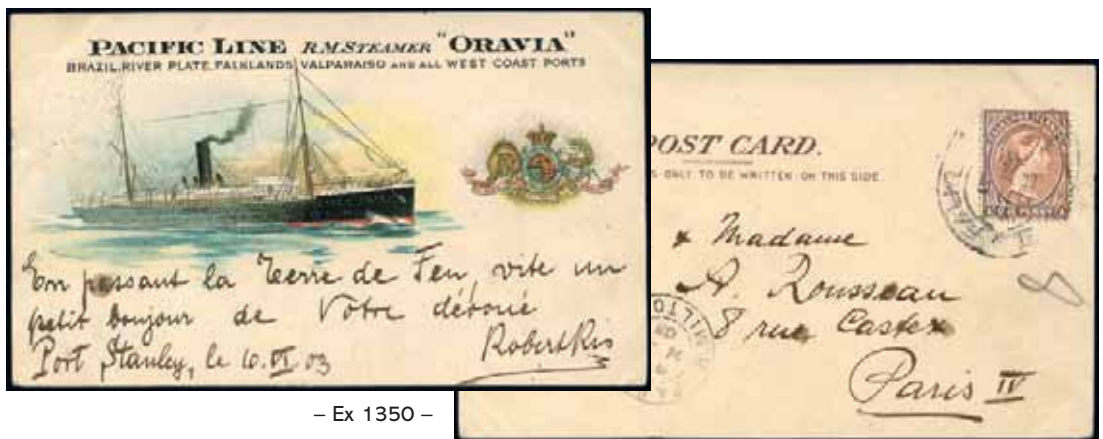 PACIFIC LINE R.M.STEAMER "ORAVIA"
BRAZIL, RIVER PLATE, FALKLANDS, VALPARAISO AND ALL WEST COAST PORTS
En passant la Terre de Feu, vite un
petit bonjour de Votre dévoué
Port Stanley, le 10.VI 03 Robert Ris
POST CARD.
S ONLY TO BE WRITTEN ON THIS SIDE
Madame
A. Rousseau
8 rue Castex
Paris IV
– Ex 1350 –